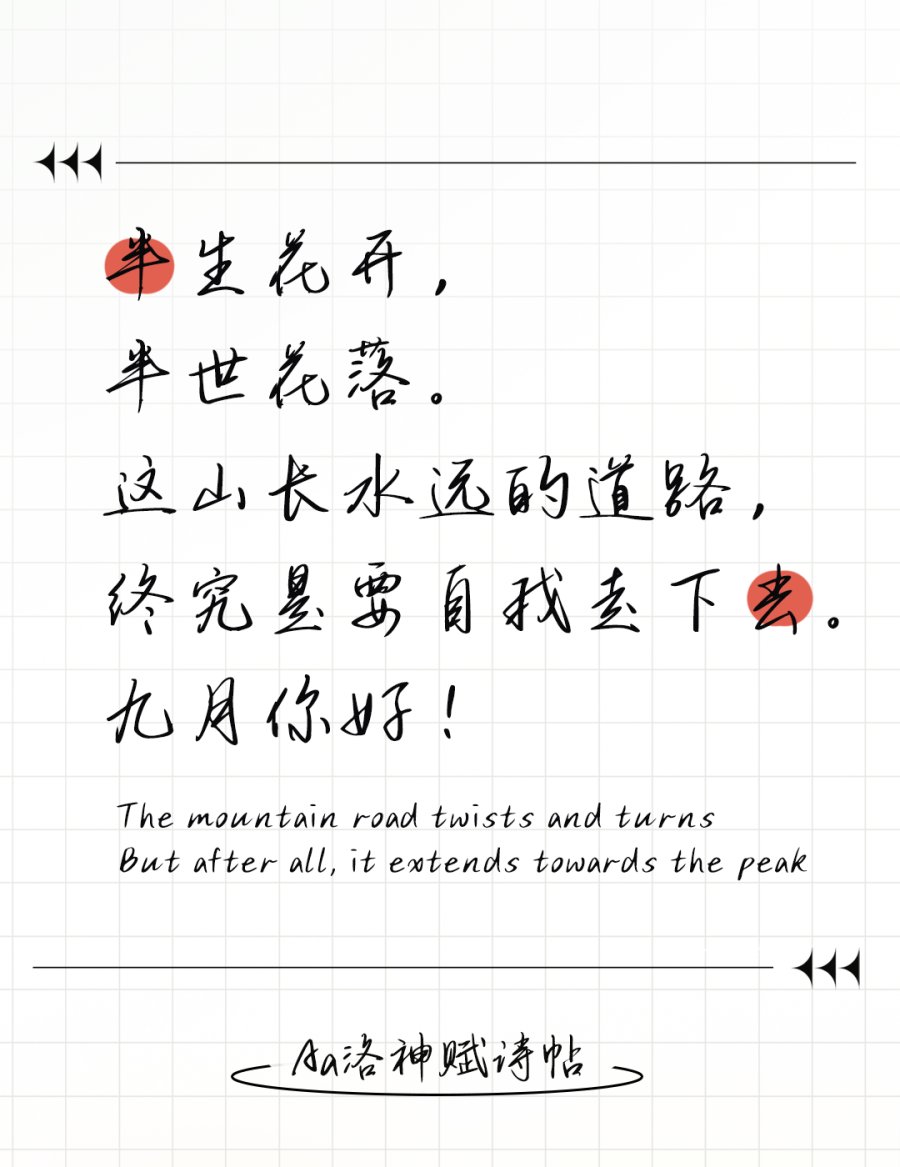 半生花开，
半世花落。
这山长水远的道路，
终究是要自找去下去。
九月你好！
The mountain road twists and turns
But after all, it extends towards the peak
Aa洛神赋诗帖